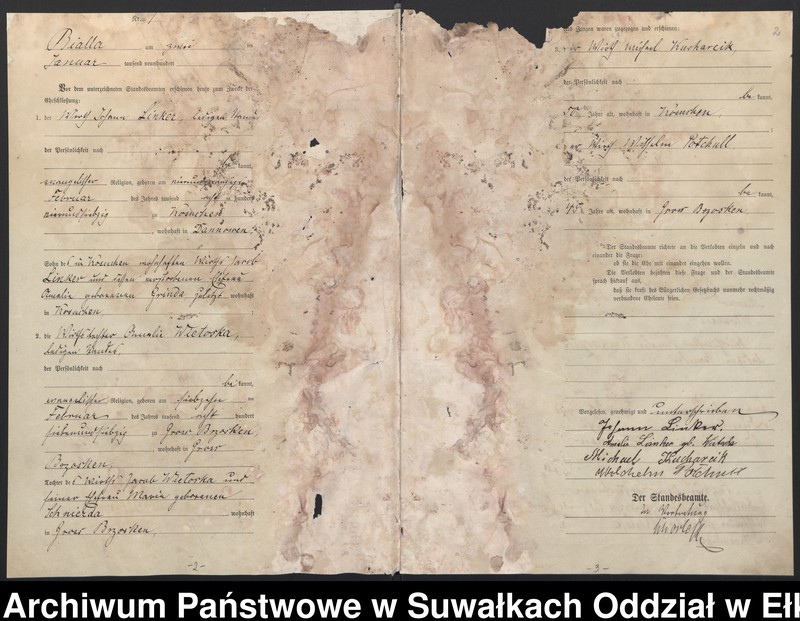 Bialla am zwei ten
Januar tausend neunhundert
Vor dem unterzeichneten Standesbeamten erschienen heute zum Zweck der
Eheschließung:
1. der Wirth Johann Linker, ledigen Standes
der Persönlichkeit nach
be kannt,
evangelischer Religion, geboren am neunundzwanzigsten
Februar des Jahres tausend acht hundert
neunundsiebzig zu Kosuchen
, wohnhaft in Dannowen
Sohn des in Kosuchen wohnhaften Wirths Jacob
Linker und dessen verstorbenen Ehefrau
Amalie geborenen Grinda zuletzt wohnhaft
in Kosuchen
2. die Wirthstochter Amalie Wietoska,
ledigen Standes,
der Persönlichkeit nach
be kannt,
evangelischer Religion, geboren am siebzehn ten
Februar des Jahres tausend acht hundert
siebenundsiebzig zu Gross Brzosken
, wohnhaft in Gross
Brzosken,
Tochter des Wirths Jacob Wietoska und
seiner Ehefrau Maria geborenen
wohnhaft
in Gross Brzosken.
-2-
Als Zeugen waren zugezogen und erschienen:
2
3. der Wirth Michael Kucharcik
der Persönlichkeit nach
be kannt,
Jahre alt, wohnhaft in Kosuchen
4. der Wirth Wilhelm
der Persönlichkeit nach
be kannt,
45 Jahre alt, wohnhaft in Gross Brzosken
Der Standesbeamte richtete an die Verlobten einzeln und nach
einander die Frage:
ob sie die Ehe mit einander eingehen wollen.
Die Verlobten bejahten diese Frage und der Standesbeamte
sprach hierauf aus,
daß sie kraft des Bürgerlichen Gesetzbuchs nunmehr rechtmäßig
verbundene Eheleute seien.
Vorgelesen, genehmigt und unterschrieben
Johann Linker.
Amalie Linker geb. Wietoska
Michael Kucharcik
Wilhelm
Der Standesbeamte.
In Vertretung
-3-
Archiwum Państwowe w Suwałkach Oddział w Ełk